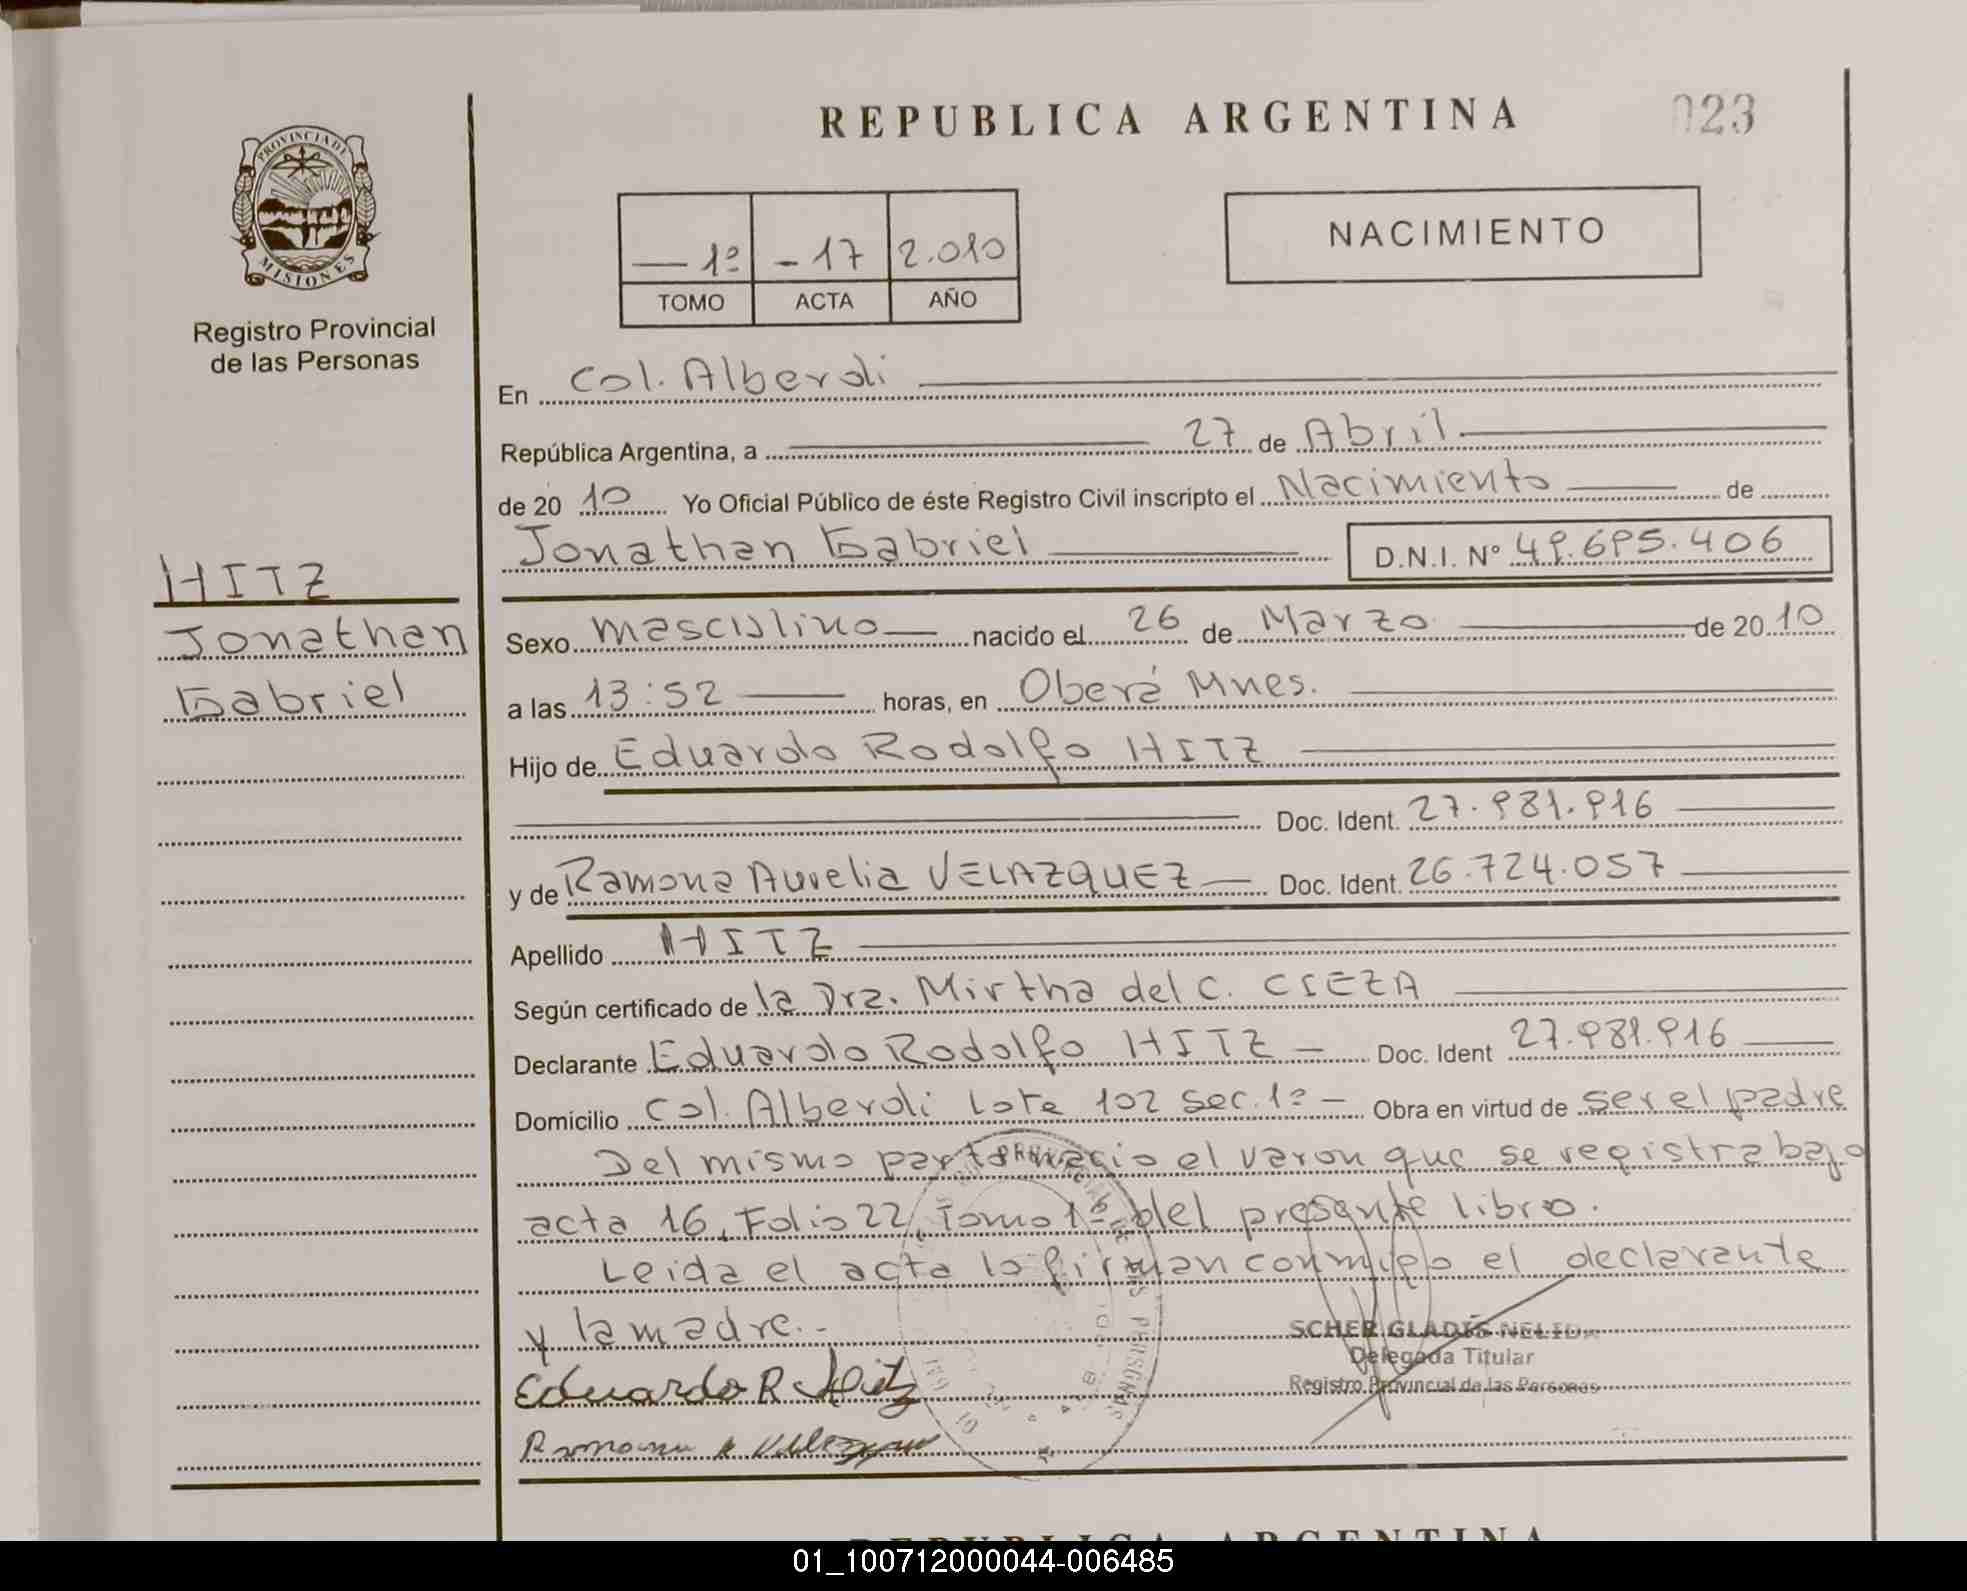 REPUBLICA ARGENTINA
023
PROVINCIA DE
MISIONES
Registro Provincial
de las Personas
— 1º - 17 2.010
TOMO ACTA AÑO
NACIMIENTO
En Col. Alberdi
República Argentina, a 27 de Abril
de 20 10 Yo Oficial Público de éste Registro Civil inscripto el Nacimiento de
Jonathan Gabriel D.N.I. Nº 49.695.406
HITZ
Jonathan
Gabriel
Sexo masculino nacido el 26 de Marzo de 20 10
a las 13:52 horas, en Oberá Mnes.
Hijo de Eduardo Rodolfo HITZ
Doc. Ident. 27.981.916
y de Ramona Aurelia VELAZQUEZ Doc. Ident. 26.724.057
Apellido HITZ
Según certificado de la Dra. Mirtha del C. CSEZA
Declarante Eduardo Rodolfo HITZ Doc. Ident 27.981.916
Domicilio Col. Alberdi Lote 102 Sec. 1º - Obra en virtud de ser el padre
Del mismo parto nacio el varon que se registra bajo
acta 16, Folio 22, Tomo 1º del presente libro.
Leida el acta lo firman conmigo el declarante
y la madre.-
SCHER GLADIS NELIDA
Delegada Titular
Registro Provincial de las Personas
Eduardo R Hitz
REPUBLICA ARGENTINA
01_100712000044-006485